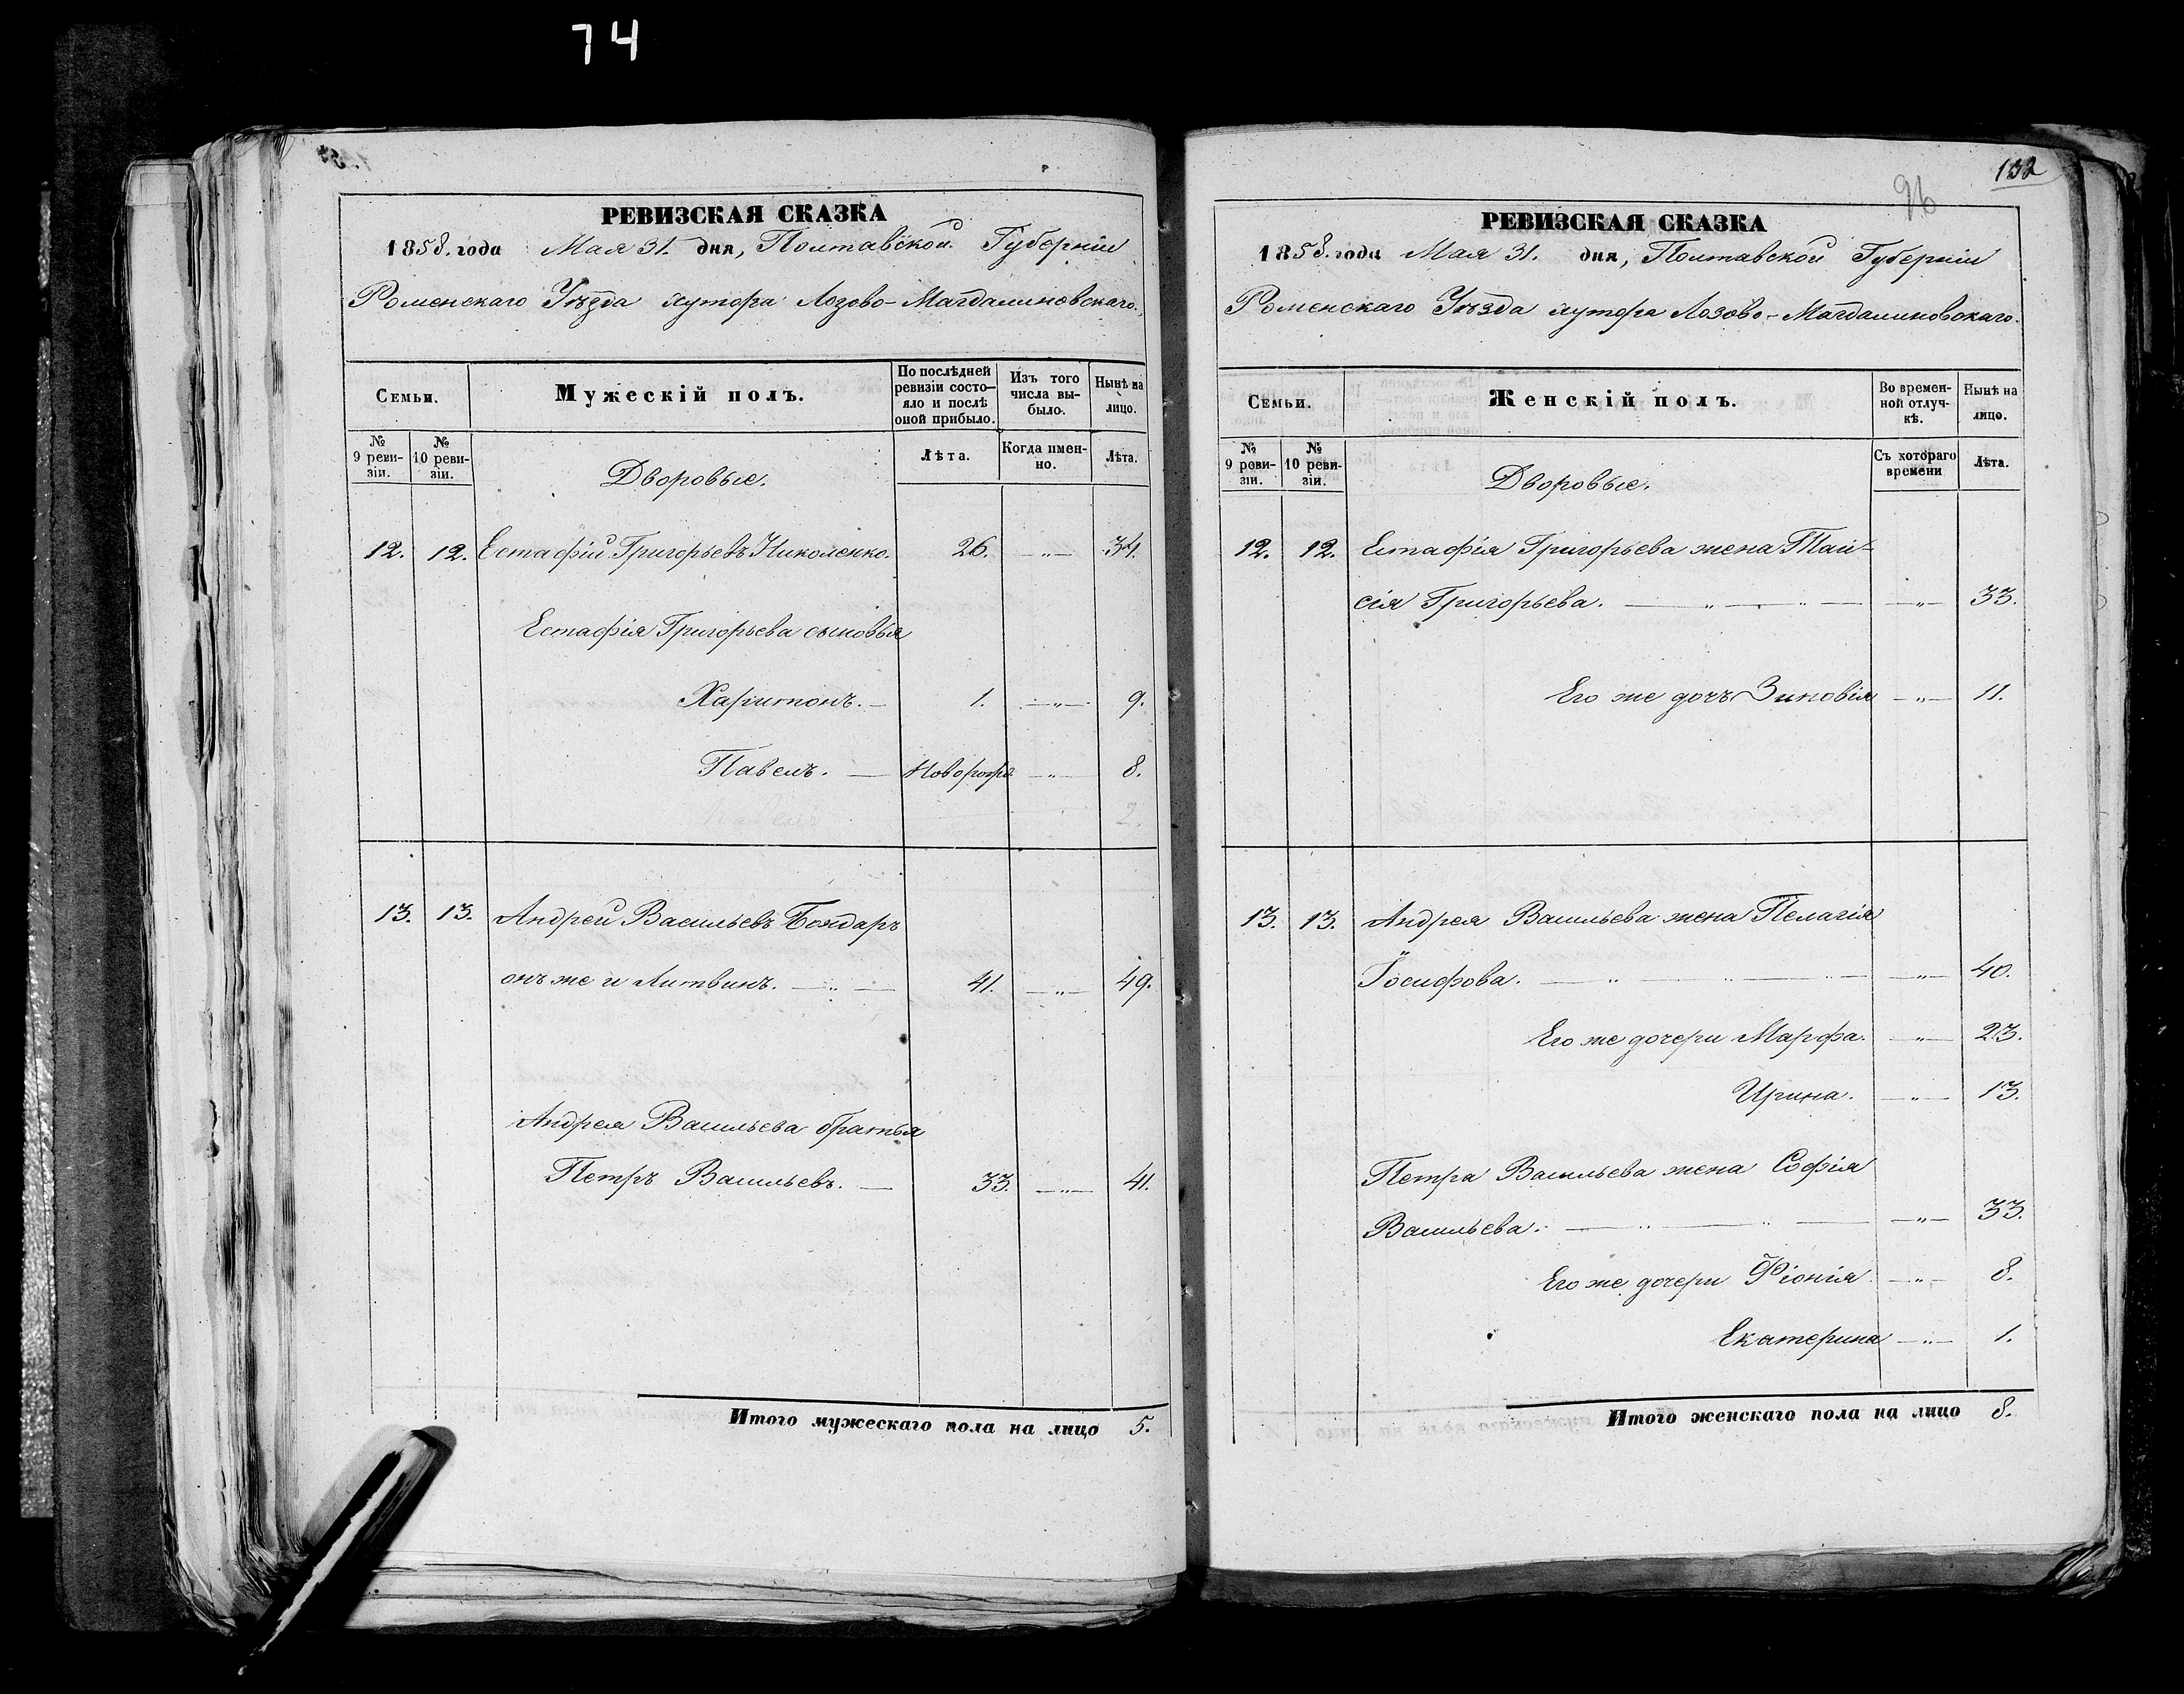 74
РЕВИЗСКАЯ СКАЗКА
1858. года Мая 31. дня, Полтавской Губернiи
Роменскаго Уѣзда хутора Лозово-Магдалиновскаго.
Семьи.
Мужескiй полъ.
По послѣдней
ревизiи состо—
яло и послѣ
оной прибыло.
Изъ того
числа вы-
было.
Нынѣ на
лицо.
№
9 реви-
зiи.
№
10 реви-
зiи.
Дворовые.
Лѣта.
Когда имен-
но.
Лѣта.
12. 12. Естафiй Григорьевъ Николенко. 26. —"— 34.
Естафiя Григорьева сыновья
Харитонъ. — 1. —"— 9.
Павелъ. — Новорожд —"— 8.
2.
13. 13. Андрей Васильевъ Бондарь
онъ же и Литвинъ. —"— 41. —"— 49.
Андрея Васильева братья
Петръ Васильевъ. — 33. —"— 41.
Итого мужескаго пола на лицо 5.
132
96
РЕВИЗСКАЯ СКАЗКА
1858. года Мая 31. дня, Полтавской Губернiи
Роменскаго Уѣзда хутора Лозово-Магдалиновскаго.
Семьи.
Женскiй полъ.
Во времен-
ной отлуч-
кѣ.
Нынѣ на
лицо.
№
9 реви-
зiи.
№
10 реви-
зiи.
Дворовые.
Съ котораго
времени
Лѣта.
12. 12. Естафiя Григорьева жена Таи-
сiя Григорьева. —"—"— —"— 33.
Его же дочь Зиновiя —"— 11.
13. 13. Андрея Васильева жена Пелагiя
Iосифова. —"—"— —"— 40.
Его же дочери Марфа. —"— 23.
Ирина. —"— 13.
Петра Васильева жена Софiя
Васильева. —"—"— —"— 33.
Его же дочери Фiонiя —"— 8.
Екатерина —"— 1.
Итого женскаго пола на лицо 8.